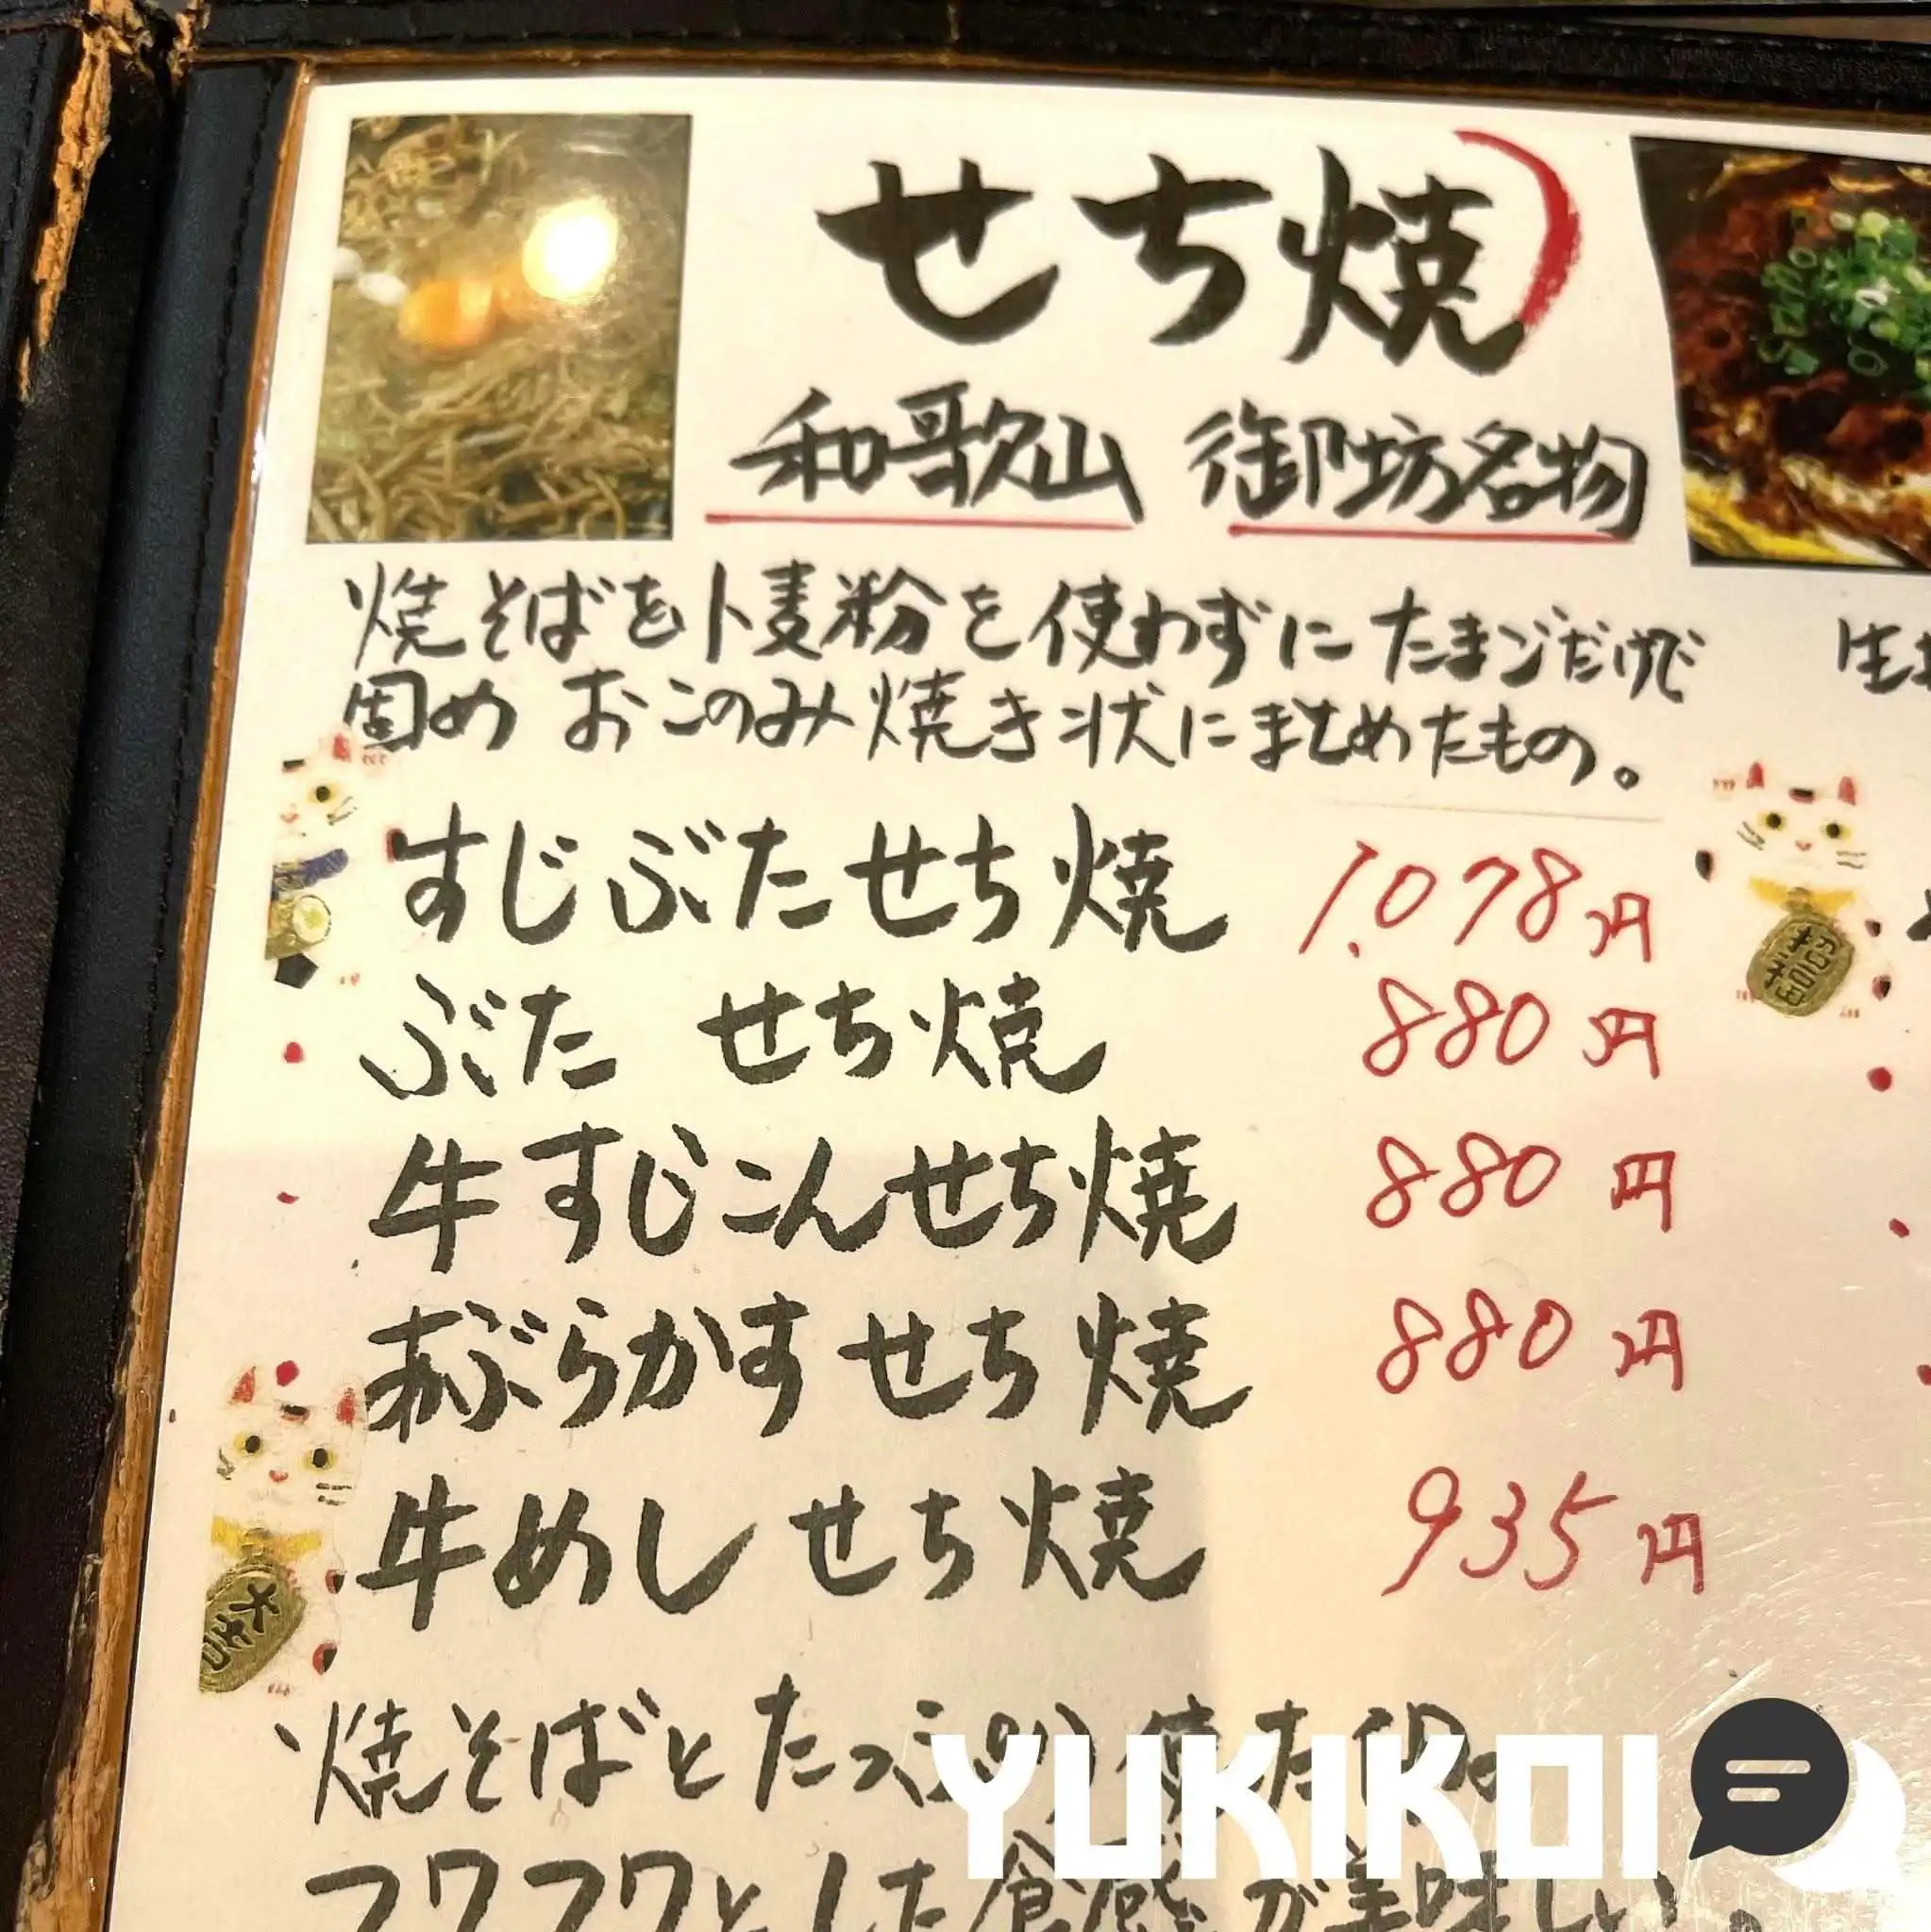 せち焼
和歌山 御坊名物
焼そばを小麦粉を使わずにたまごだけで
固め おこのみ焼き状にまとめたもの。
すじぶたせち焼 1,078円
ぶた せち焼 880円
牛すじこんせち焼 880円
あぶらかすせち焼 880円
牛めしせち焼 935円
焼そばとたっぷり使た卵の
フワフワとした食感が美味しい
生
大吉
YUKIKOI